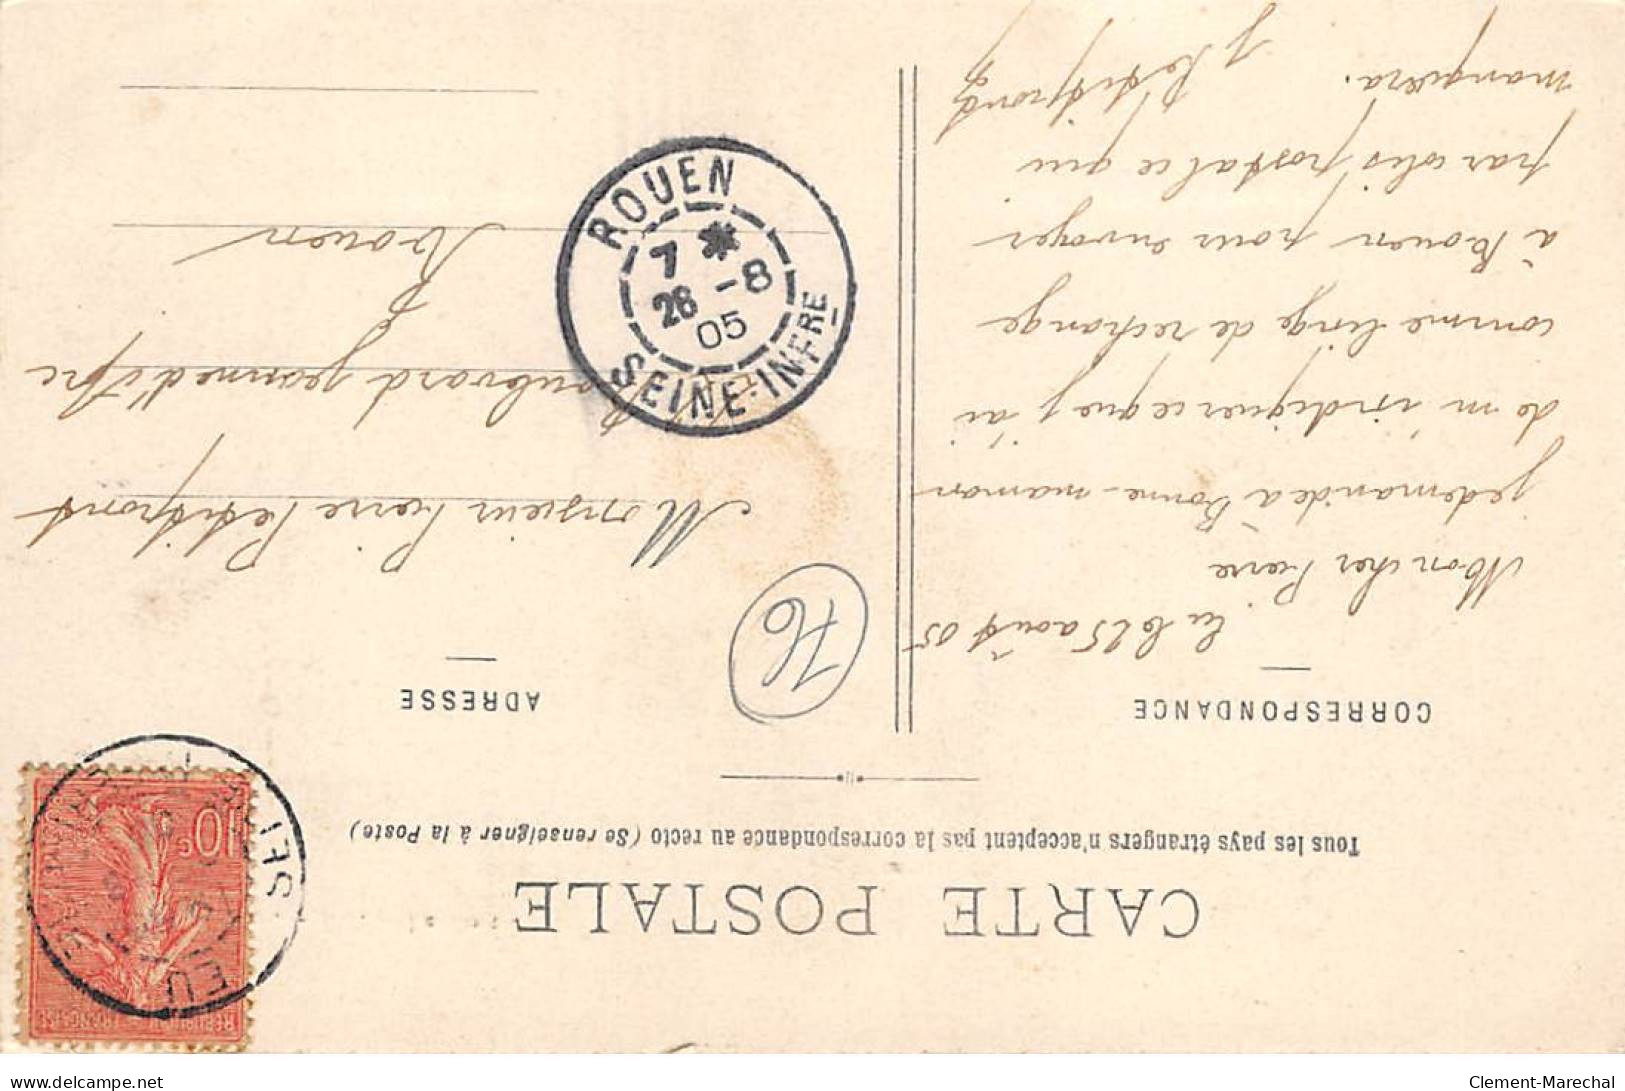 CARTE POSTALE
Tous les pays étrangers n'acceptent pas la correspondance au recto (Se renseigner à la Poste)
CORRESPONDANCE
25 août 05
Mon cher Pierre
je demande à Bonne-maman
de m'indiquer ce que j'ai
comme linge de rechange
à Rouen pour envoyer
par colis postal ce qui
manquera.
J Petitfrond
ADRESSE
76
Monsieur Pierre Petitfront
boulevard Jeanne d'Arc
Rouen
ROUEN
7 *
26 -8
05
SEINE-INFRE
10c
RÉPUBLIQUE FRANÇAISE
SEINE
EU
delcampe.net
Clement-Marechal